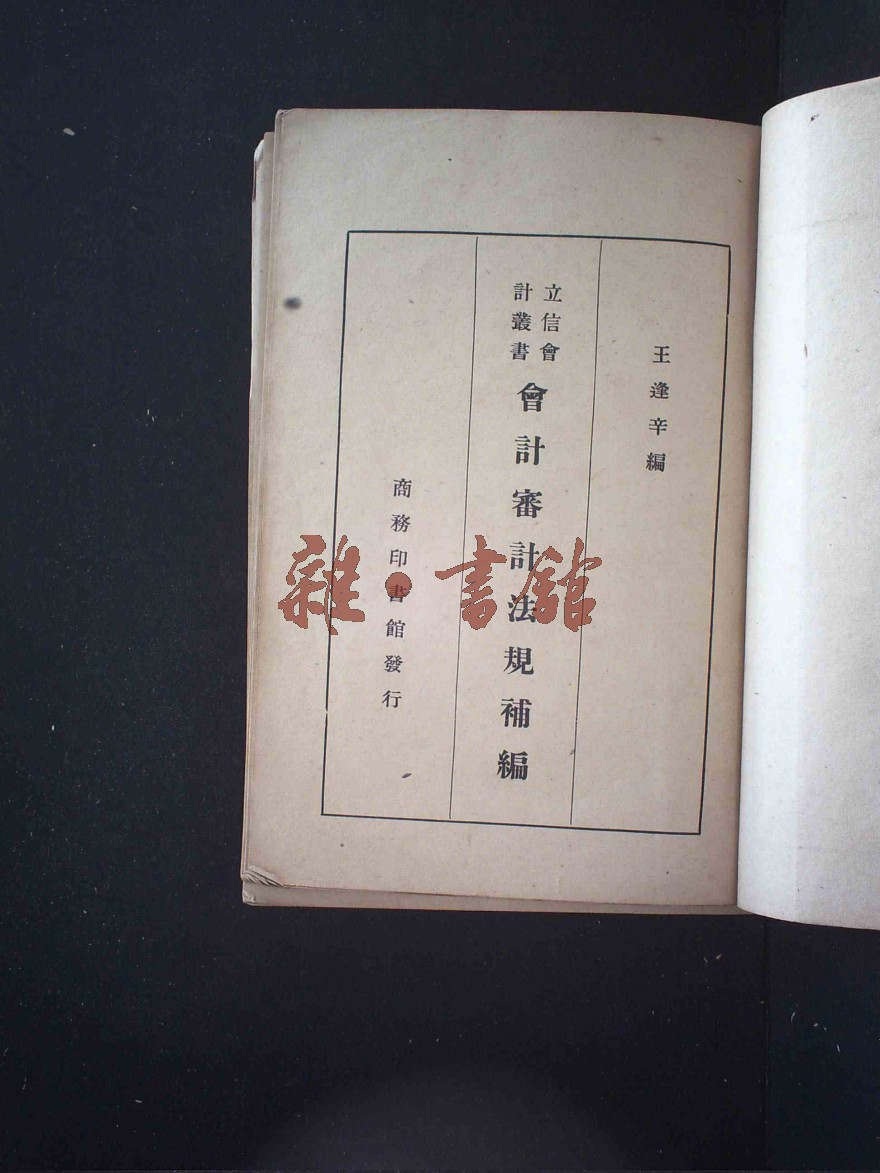 王逢辛編
立信會
計叢書
會計審計法規補編
商務印書館發行
雜·書館